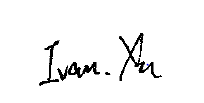 Ivan. Xu